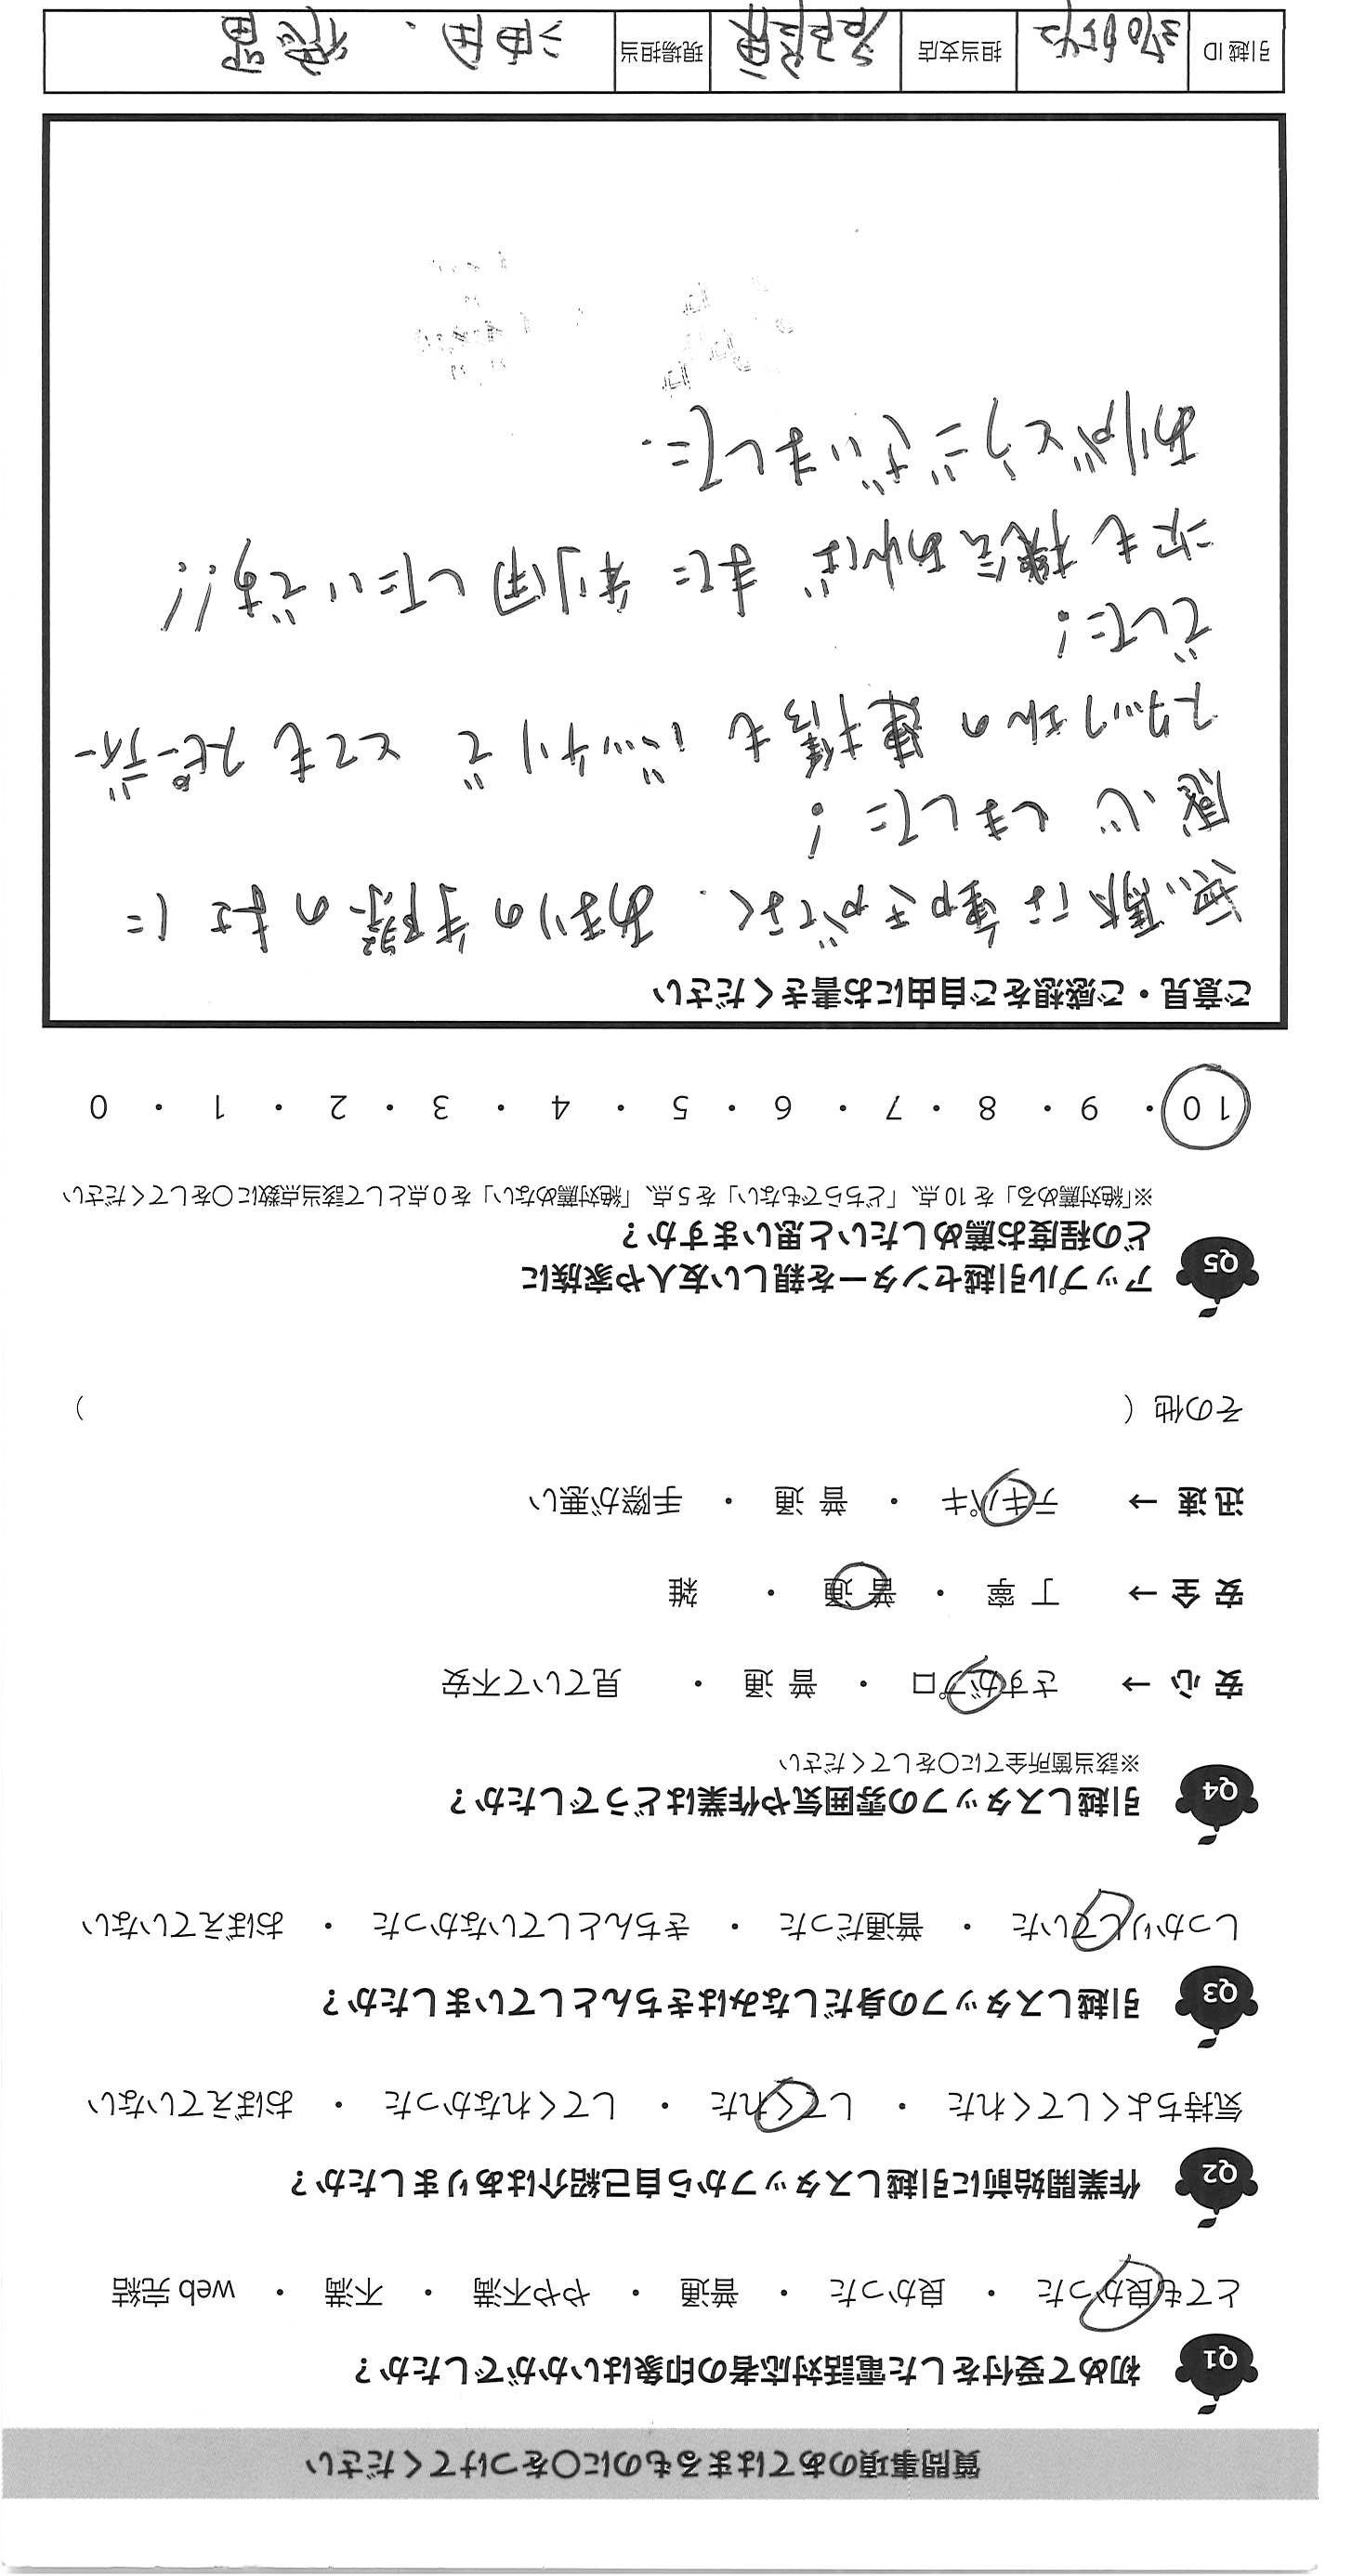 質問事項のあてはまるものに〇をつけてください
Q1 初めて受付をした電話対応者の印象はいかがでしたか？
とても良かった ・ 良かった ・ 普通 ・ やや不満 ・ 不満 ・ web 完結
Q2 作業開始前に引越しスタッフから自己紹介はありましたか？
気持ちよくしてくれた ・ してくれた ・ してくれなかった ・ おぼえていない
Q3 引越しスタッフの身だしなみはきちんとしていましたか？
しっかりしていた ・ 普通だった ・ きちんとしていなかった ・ おぼえていない
Q4 引越しスタッフの雰囲気や作業はどうでしたか？
※該当箇所全てに〇をしてください
安 心 → さすがプロ ・ 普 通 ・ 見ていて不安
安 全 → 丁 寧 ・ 普 通 ・ 雑
迅 速 → テキパキ ・ 普 通 ・ 手際が悪い
その他（ ）
Q5 アップル引越センターを親しい友人や家族に
どの程度お薦めしたいと思いますか？
※「絶対薦める」を 10 点、「どちらでもない」を 5 点、「絶対薦めない」を 0 点として該当点数に〇をしてください
10 ・ 9 ・ 8 ・ 7 ・ 6 ・ 5 ・ 4 ・ 3 ・ 2 ・ 1 ・ 0
ご意見・ご感想をご自由にお書きください
無駄は動きがなく、あまりの手際のよさに
感心しました！
スタッフさんの連携もバッチリでとてもスピーディー
でした！
次も機会あればまた利用したいです!!
ありがとうございました.
引越 ID 担当支店 現場担当 油田 .